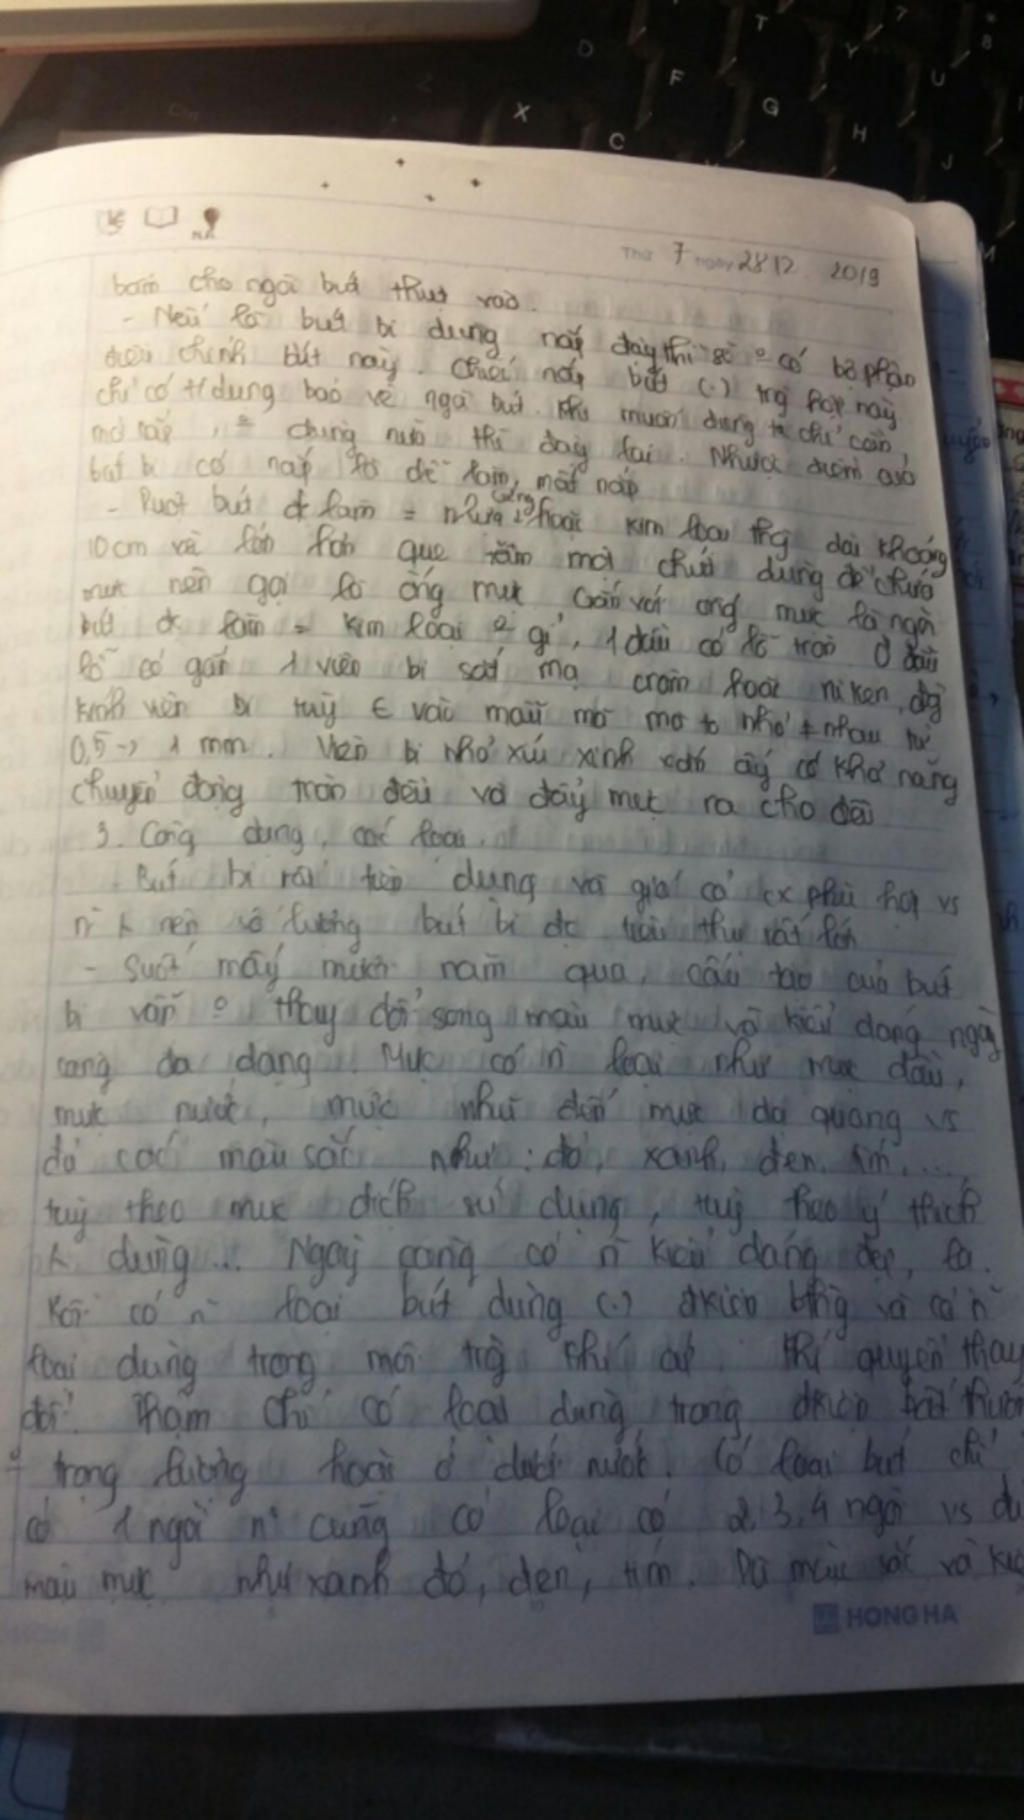 Thứ 7 ngày 28 12 2019
bấm cho ngòi bút thụt vào.
- Nếu là bút bi dùng nắp đậy thì sẽ o có bộ phận
điều chỉnh bút này. Chiếc nắp bút (.) trg hợp này
chỉ có t/dụng bảo vệ ngòi bút. Khi muốn dùng ta chỉ cần
mở nắp, o dùng nữa thì đậy lại. Nhược điểm của
bút bi có nắp là dễ làm mất nắp
- Ruột bút đc làm = nhựa cứng hoặc kim loại thg dài khoảng
10cm và lớn hơn que tăm một chút dùng để chứa
mực nên gọi là ống mực. Gắn với ống mực là ngòi
bút đc làm = kim loại o gỉ, 1 đầu có lỗ tròn ở đầu
lỗ có gắn 1 viên bi sắt mạ crôm hoặc niken, đg
kính viên bi tuỳ ∈ vào mẫu mã mà to nhỏ ≠ nhau từ
0,5 -> 1 mm. Viên bi nhỏ xíu xinh xắn ấy có khả năng
chuyển động tròn đều và đẩy mực ra cho đều
3. Công dụng, các loại.
- Bút bi rất tiện dụng và giá cả cx phù hợp vs
nên số lượng bút bi đc tiêu thụ rất lớn
- Suốt mấy mươi năm qua, cấu tạo của bút
bi vẫn o thay đổi song màu mực và kiểu dáng ngày
càng đa dạng. Mực có n loại như mực dầu,
mực nước, mực nhũ đến mực dạ quang vs
đủ các màu sắc như: đỏ, xanh, đen, tím,....
tuỳ theo mục đích sử dụng, tuỳ theo ý thích
dùng... Ngày càng có n kiểu dáng đẹp, lạ.
Rồi có n loại bút dùng (.) đkiện bthg và cả n
loại dùng trong môi trg khí áp khí quyển thay
đổi. Thậm chí có loại dùng trong đkiện bất thườn
trọng lượng hoặc ở dưới nước. Có loại bút chỉ
có 1 ngòi n cũng có loại có 2,3,4 ngòi vs đủ
màu mực như xanh đỏ, đen, tím. Dù màu sắc và kiể
HONG HA